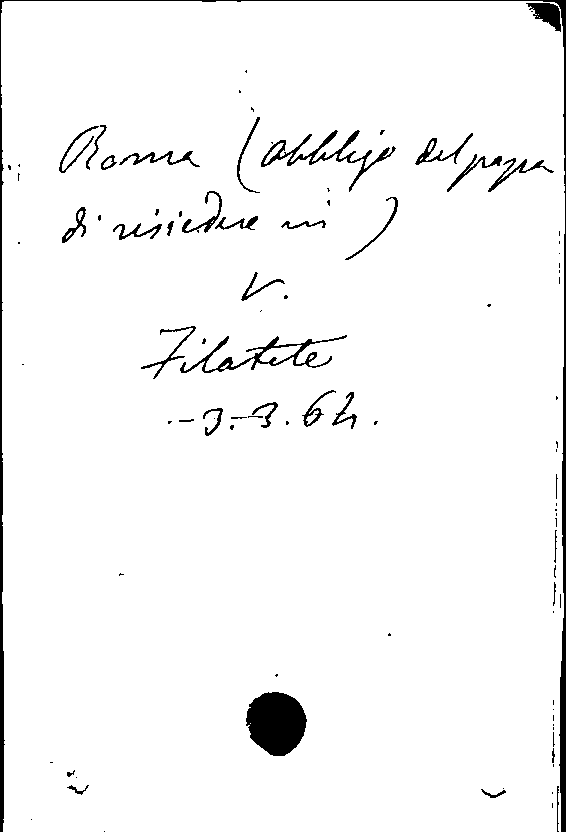 Roma (obbligo del papa
di risiedere in)
V.
Filalete
-3.-3.64.